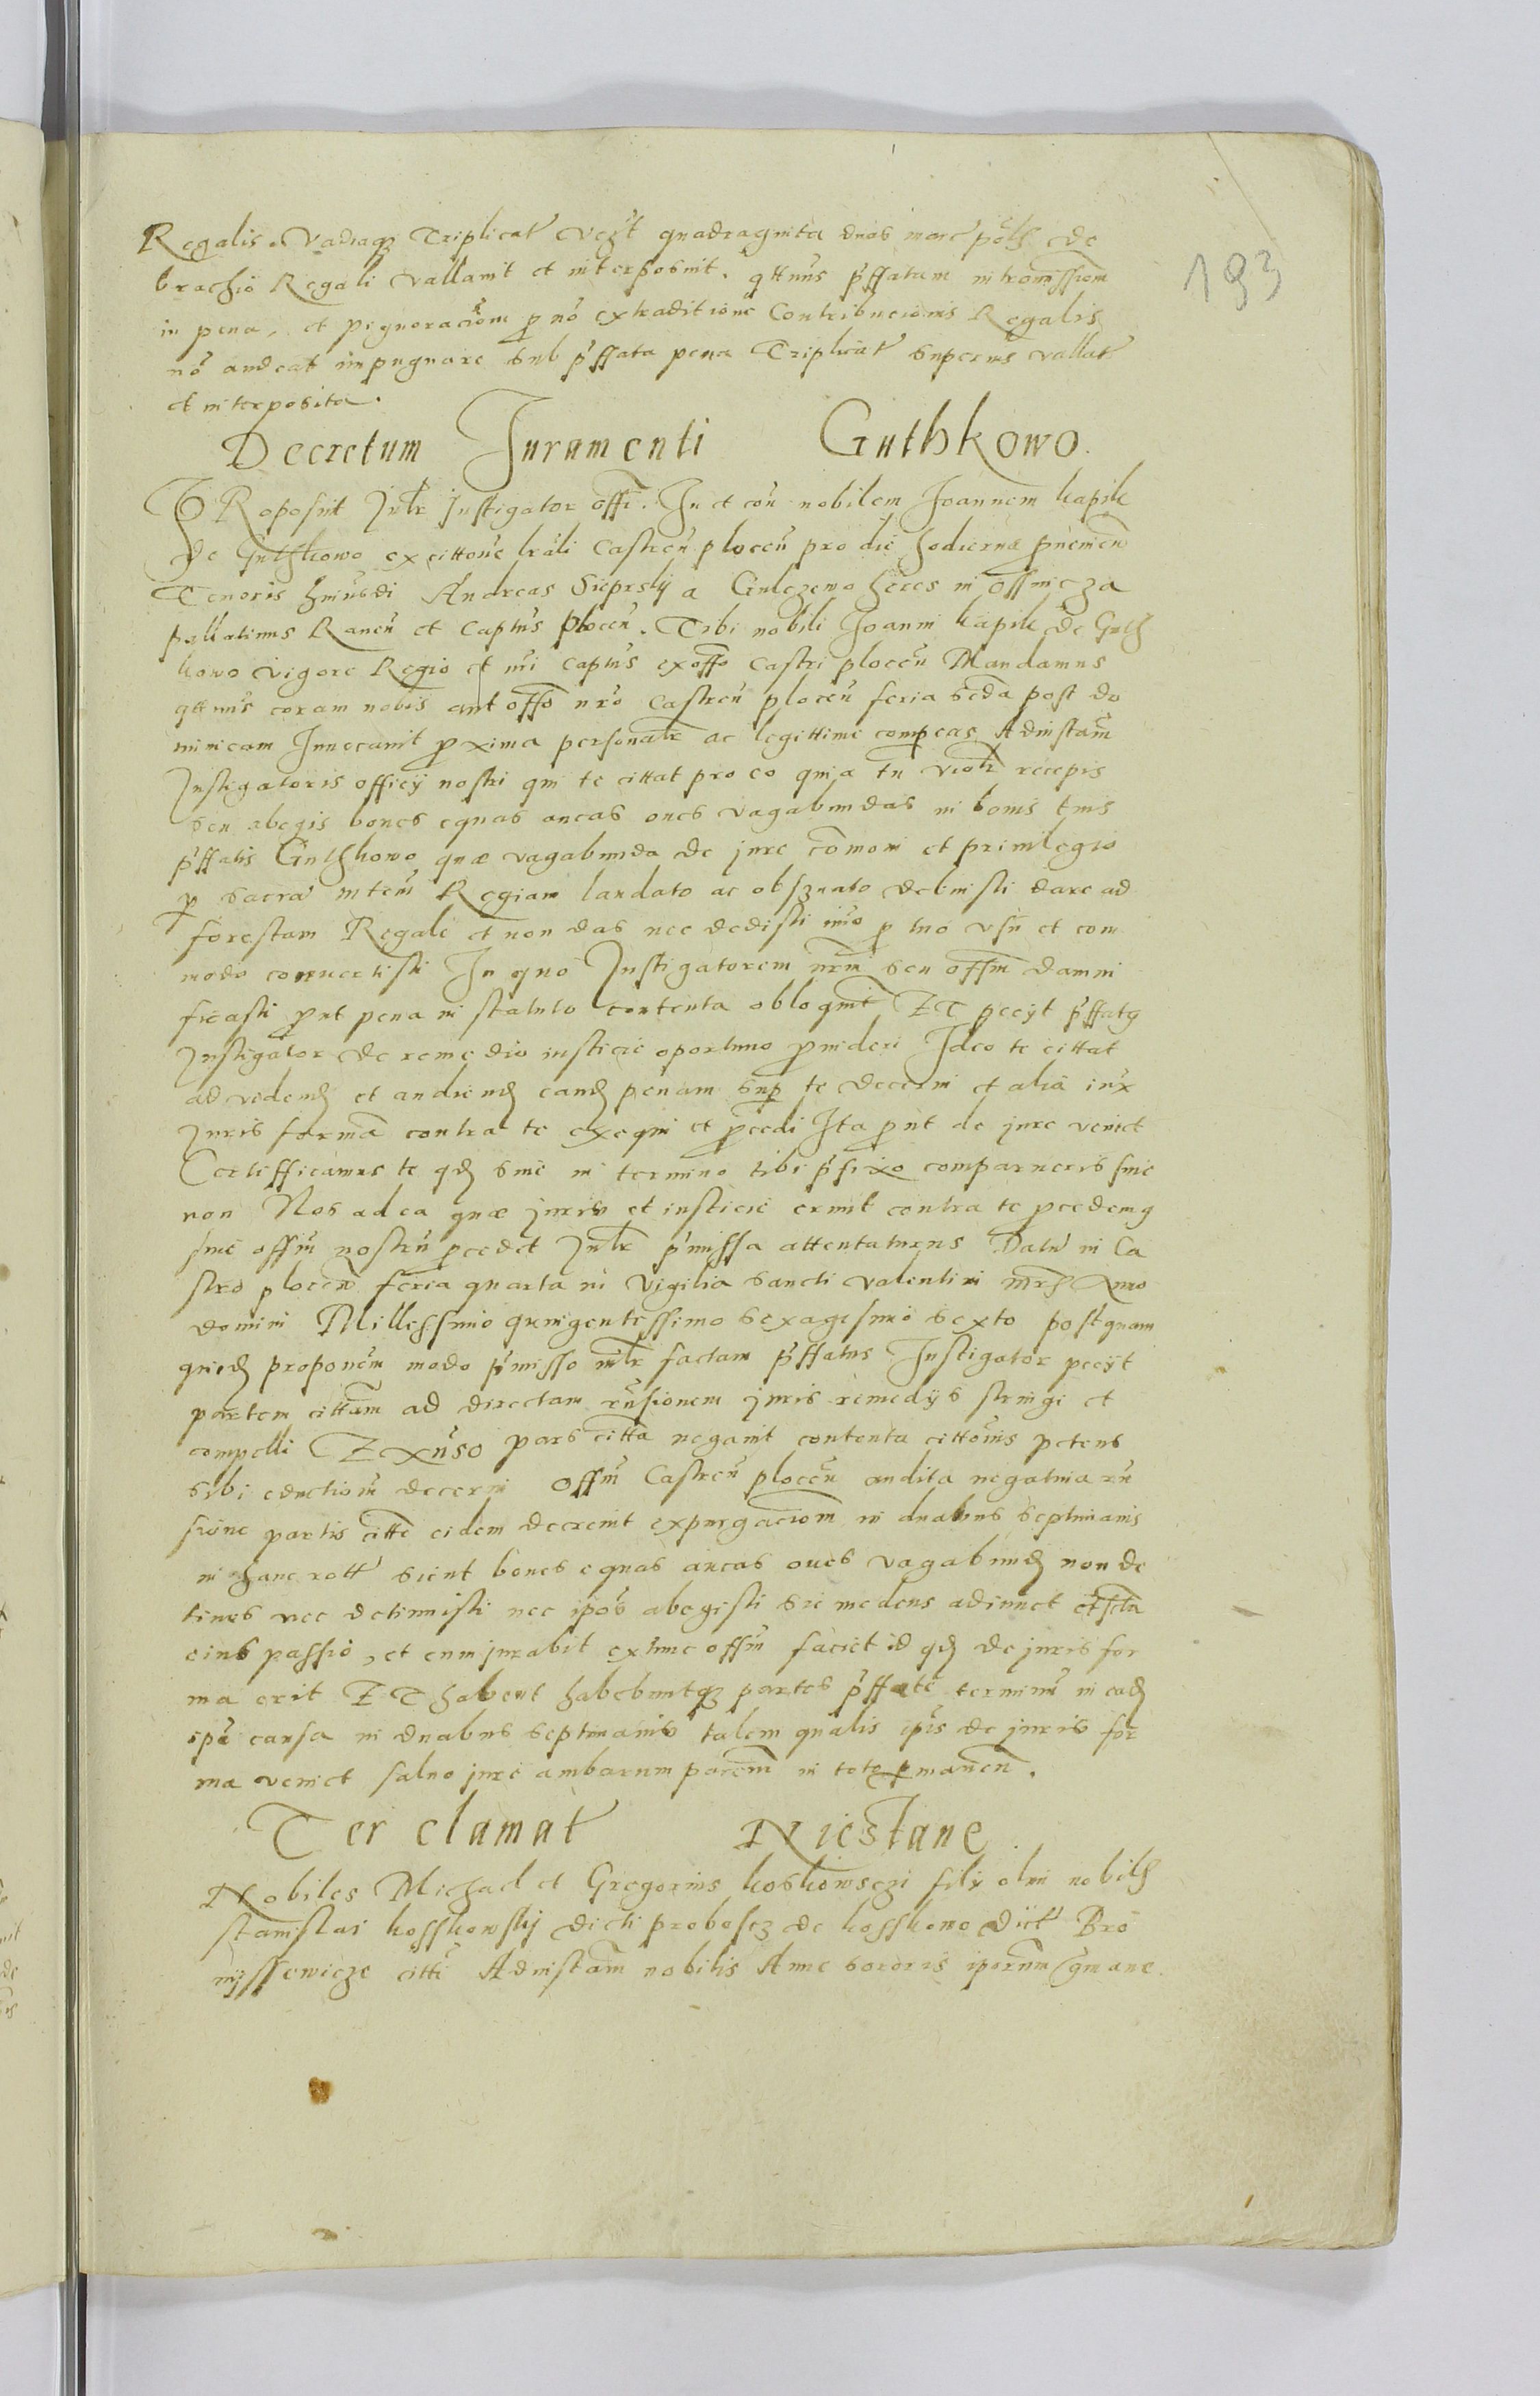 193
Regalis Vadiaqz Triplicat vczt quadraginta duas marc polh de
brachio Regali vallavit et interposuit. qttnus pffatam intromissiom
in pena, et pignoraciom p no extraditione Contribucionis Regalis
no audeat impugnare sub pffata pena Triplicat superius vallat
et interposita.
Decretum Juramenti Guthkowo.
PRoposuit Jnltr Justigator offi. In et con nobilem Joannem kapik
de Guthkowo ex cittone lrali Castren plocen pro die hodierna pneniem
Tenoris huiusdi Andreas Sieprsky a Gulczewo heres in Ossnicza
pallatinus Raven et Captus plocen. Tibi nobili Joanni kapik de Guth
kowo vigore Regio et nri captus ex offo castri plocen Mandamus
qttnus coram nobis aut offo nro Castren plocen feria scda post do
minicam Innocavit proxima personaltr ac legittime compeas Adinstam
Instigatoris officy nostri qui te cittat pro eo quia tu violtr recepis
seu abegis boves equas aucas oves vagabundas in bonis tuis
pffatis Guthkowo quae vagabunda de jure comoni et privilegio
p sacra mtem Regiam laudato ac obsznato debuisti dare ad
forestam Regale et non das nec dedisti imo p tuo usu et com
modo convertisti In quo Justigatorem nrm seu offm damni
ficasti put pena in statuto contenta obloquit ET pecyt pffatg
Justigator de remedio iusticie oportuno provideri Ideo te cittat
ad videnh et audienh eanh penam sup te decerni et alia iux
Juris forma contra te exequi et procedi Ita prut de jure veniet
Certifficamus te qh sive in termino tibi pfixo comparueris sive
non Nos ad ea quae juris et iusticie erunt contra te pcedemg
sive offm nostru pcedet Jnltr pmissa attentaturus Datu in Ca
stro plocen feria quarta in vigilia sancti valentini mrh Anno
domini Millessimo quingentessimo sexagesimo sexto postquam
quidh proponem modo pmisso Jnltr factam pffatus Justigator pecyt
partem cittam ad directam rnsionem juris remedys stringi et
compelli Exnuso pars citta negavit contenta cittonis petens
sibi eductiom decerni Offm Castren plocen audita negativa rn
sione partis citte eidem decrevit expurgaciom in duabus septimanis
in hanc rott sicut boves equas aucas oves vagabundh non de
tines nec detinuisti nec ipos abegisti sic me deus adiuuet et scta
eius passio, et cum jurabit extunc offm faciet id qh de juris for
ma erit ET habent habebuntqz partes pffate terminu in eadh
ipa causa in duabus septimanis talem qualis ipis de juris for
ma veniet salvo jure ambarum parcim in toto pmanen.
Ter clamat Niezlane
Nobiles Michael et Gregorius koskowsczi fily olim nobilh
stanislai kosskowsky dicti proboscz de kosskowo dict Bro
nyssewicze citti Adinstam nobilis Anne sororis iporum gmane.